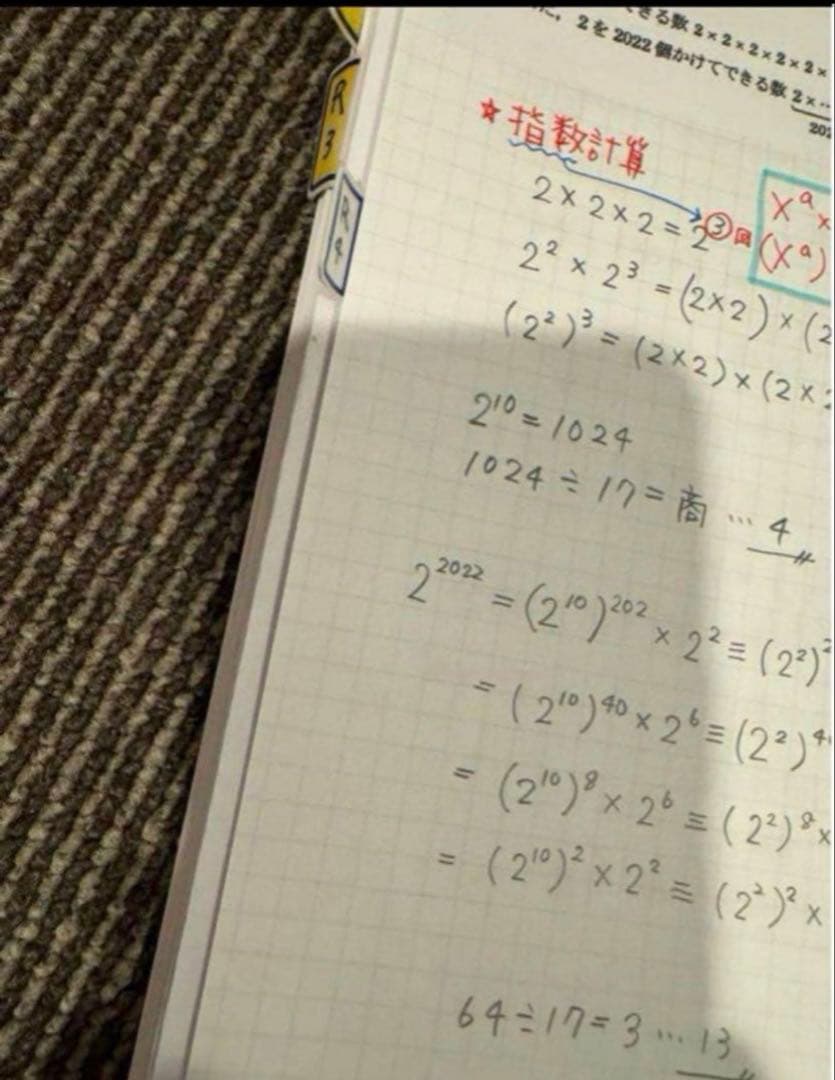 きる数 2×2×2×2×2×
2を2022個かけてできる数 2×…
R
3
R
4
☆指数計算
2×2×2=2③回
xᵃ×
(xᵃ)
2²×2³=(2×2)×(2
(2²)³=(2×2)×(2×2
2¹⁰=1024
1024÷17=商…4
2²⁰²²=(2¹⁰)²⁰²×2²≡(2²)²
=(2¹⁰)⁴⁰×2⁶≡(2²)⁴
=(2¹⁰)⁸×2⁶≡(2²)⁸×
=(2¹⁰)²×2²≡(2²)²×
64÷17=3…13